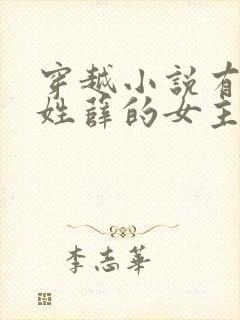 穿越小説有
姓薛的女主
李志華